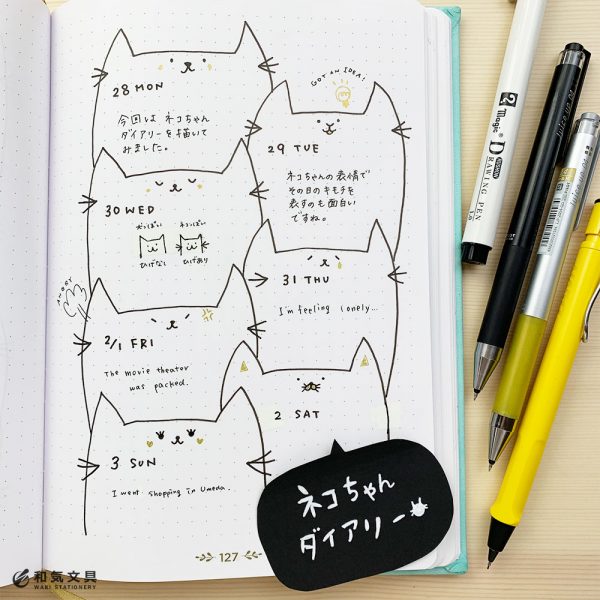 28 MON
今回は ネコちゃん
ダイアリーを描いて
みました。
GOT AN IDEA!
29 TUE
ネコちゃんの表情で
その日のキモチを
表すのも面白い
ですね。
30 WED
犬っぽい ネコっぽい
ひげなし ひげあり
31 THU
I'm feeling lonely...
ANGRY
2/1 FRI
The movie theater
was packed.
2 SAT
3 SUN
I went shopping in Umeda.
127
ネコちゃん
ダイアリー
和気文具
WAKI STATIONERY
Magic
DRAWING PEN
Juice up 04
Juice up 04